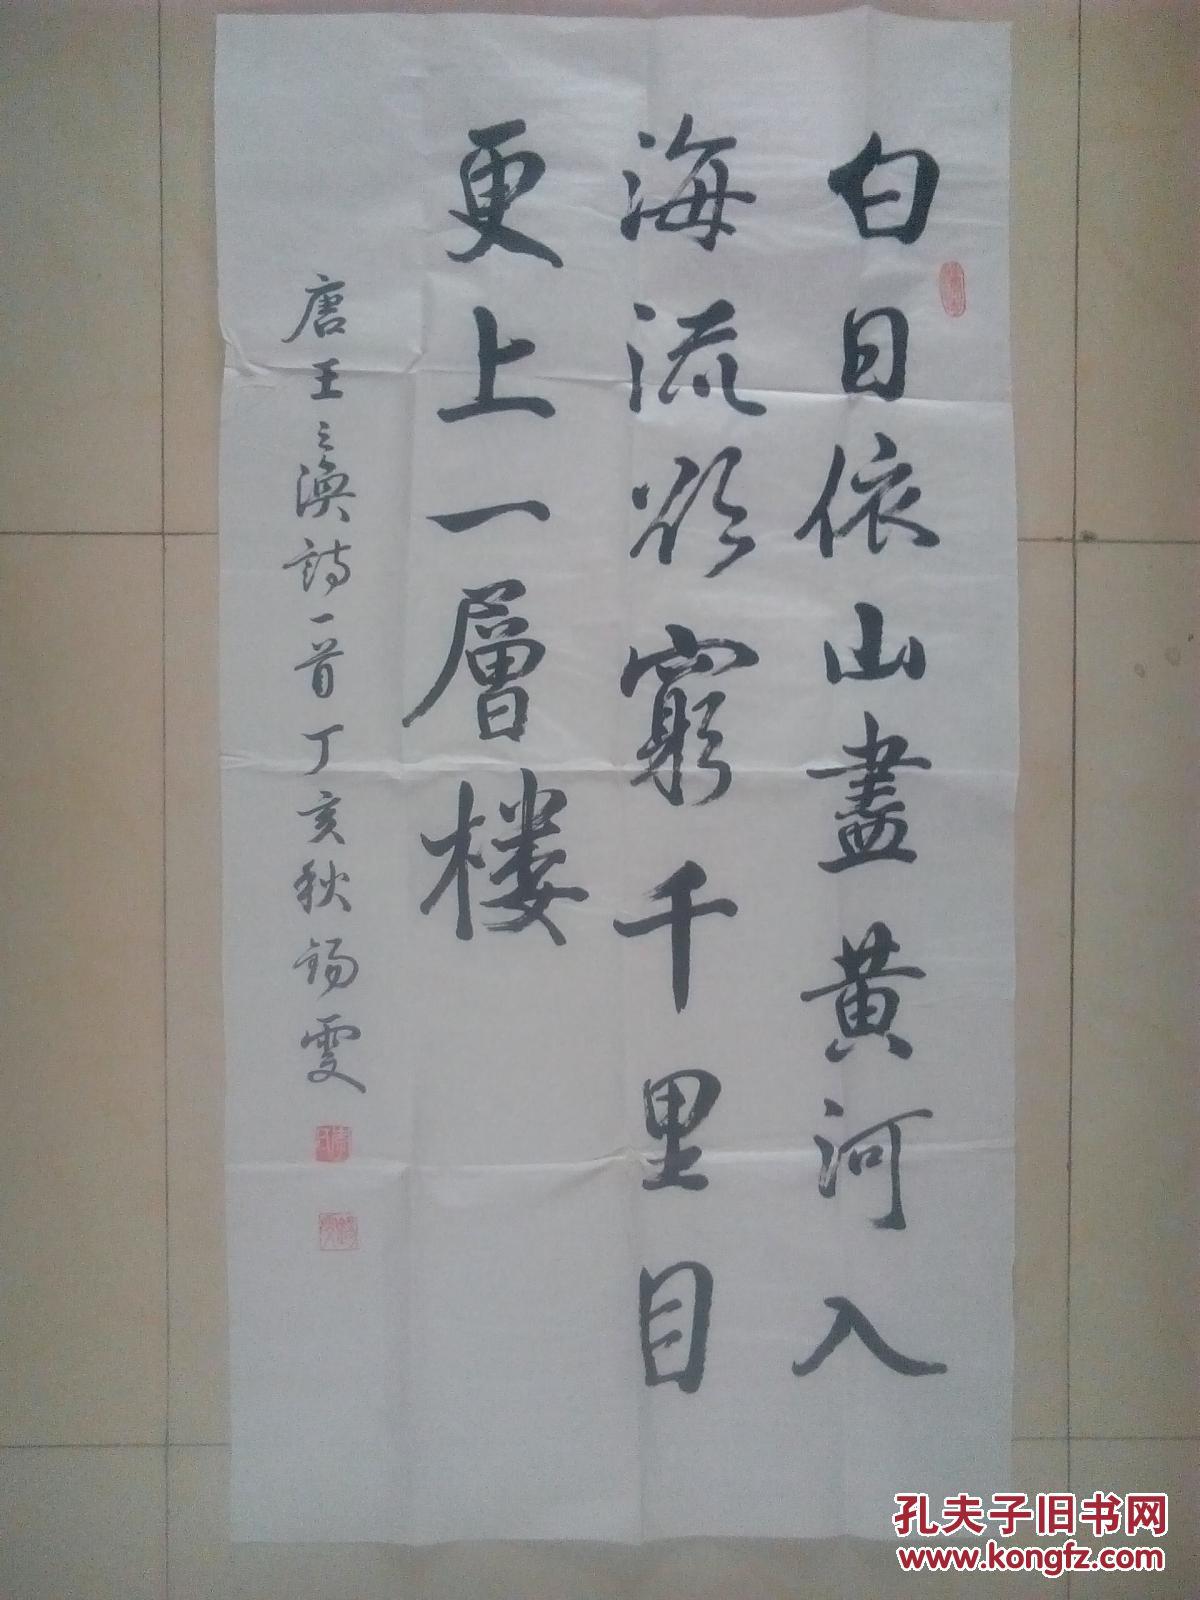 白日依山盡黃河入
海流欲窮千里目
更上一層楼
唐王之渙詩一首丁亥秋錫雯
孔夫子旧书网
www.kongfz.com